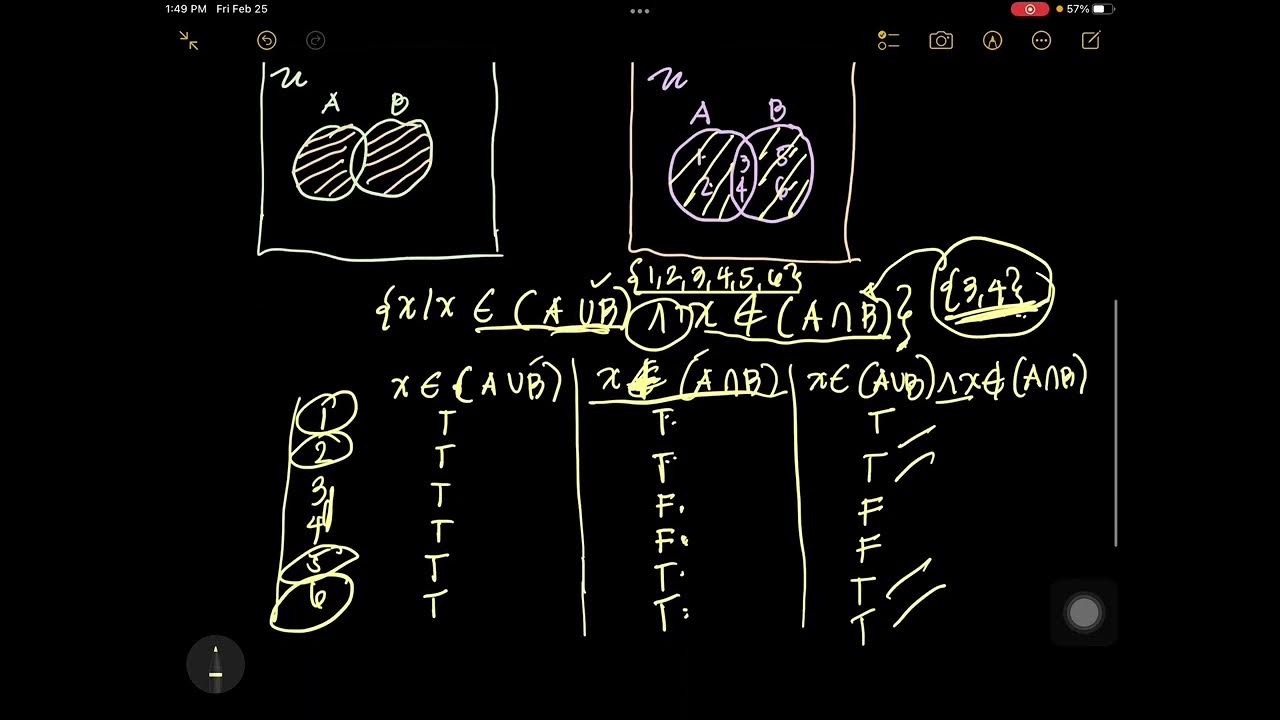 1:49 PM Fri Feb 25
57%
u
u
A B
A B
1 3 5
2 4 6
{1,2,3,4,5,6}
{3,4}
{x/x ∈ (A ∪ B) ∧ x ∉ (A ∩ B)}
x ∈ (A ∪ B) x ∉ (A ∩ B) x ∈ (A ∪ B) ∧ x ∉ (A ∩ B)
1 T T T
2 T T T
3 T F F
4 T F F
5 T T T
6 T T T